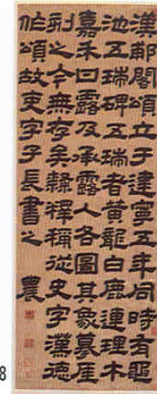 漢郙閣頌立于建寧五年同時有黽
池五瑞碑五瑞者黃龍白鹿連理木
嘉禾甘露及承露人各圖其象摹厓
刻之今無存矣隸釋稱從史字漢德
作頌故吏字子長書之 農
8